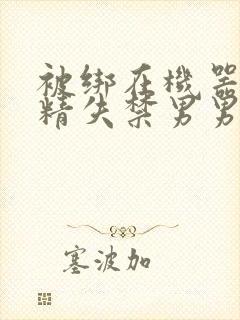 被绑在機器
精失禁男男
塞波加